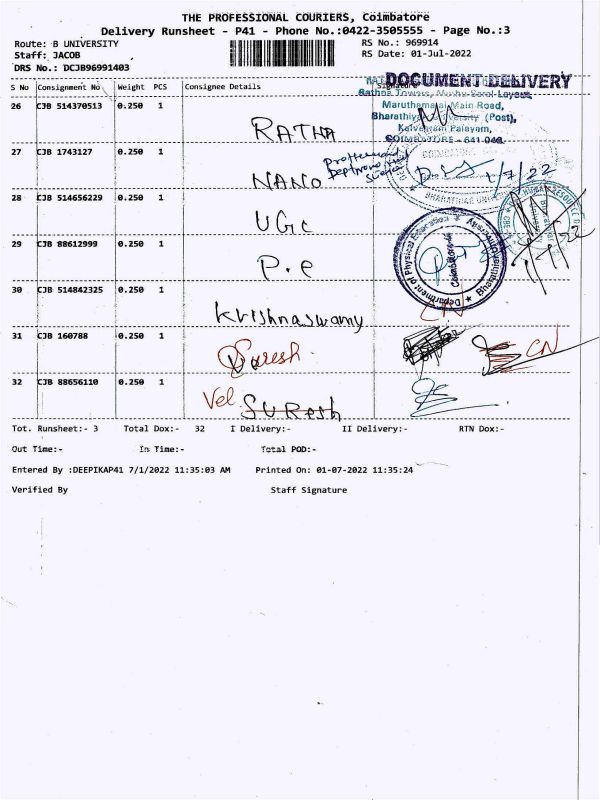 THE PROFESSIONAL COURIERS, Coimbatore
Delivery Runsheet - P41 - Phone No.:0422-3505555 - Page No.:3
Route: B UNIVERSITY RS No.: 969914
Staff: JACOB RS Date: 01-Jul-2022
DRS No.: DCJB96991403
DOCUMENT DELIVERY
S No Consignment No Weight PCS Consignee Details Signature
Maruthamalai Main Road,
(Post),
COIMBATORE - 641 046.
26 CJB 514370513 0.250 1 RATHA
27 CJB 1743127 0.250 1 NANO
1/7/22
28 CJB 514656229 0.250 1 UGC
29 CJB 88612999 0.250 1 P.e
Department of Physical Education
30 CJB 514842325 0.250 1 Krishnaswamy
CN
31 CJB 160788 0.250 1 CN
32 CJB 88656110 0.250 1 Vel SUResh
Tot. Runsheet:- 3 Total Dox:- 32 I Delivery:- II Delivery:- RTN Dox:-
Out Time:- In Time:- Total POD:-
Entered By :DEEPIKAP41 7/1/2022 11:35:03 AM Printed On: 01-07-2022 11:35:24
Verified By Staff Signature